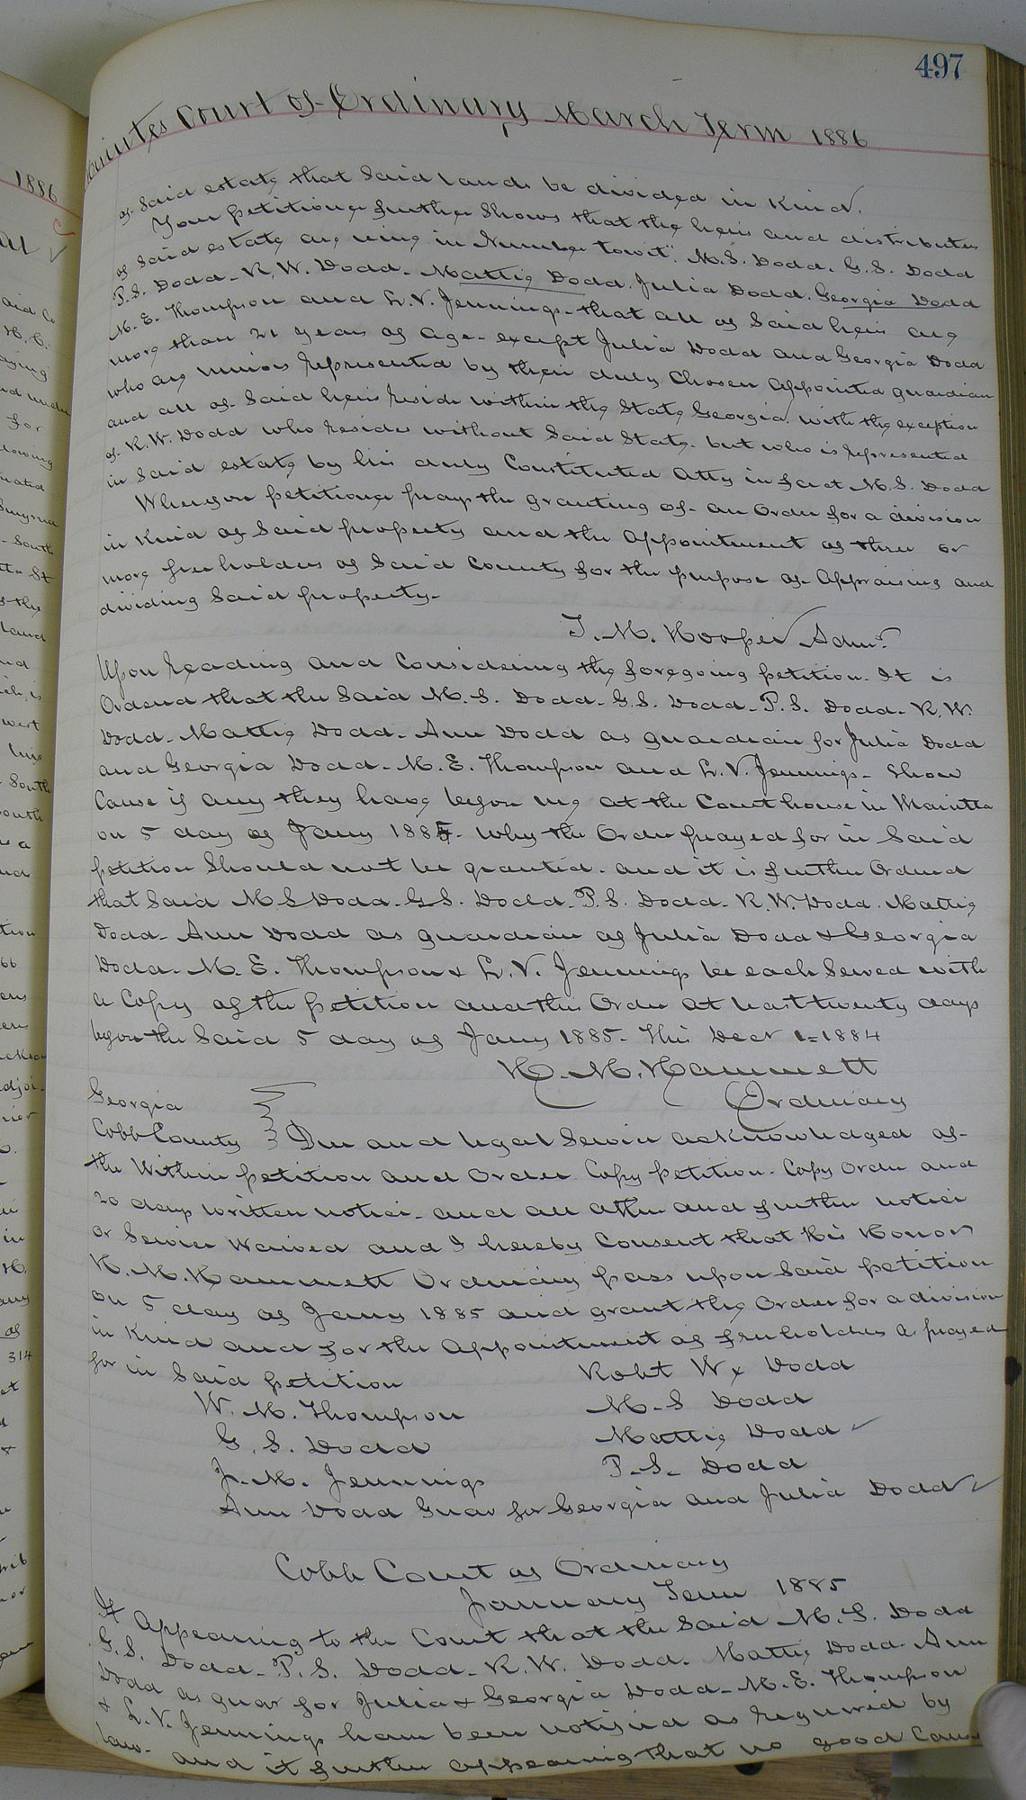 497
Minutes Court of Ordinary March Term 1886
of Said estate that Said lands be divided in Kind.
Your petitioner further Shows that the heirs and distributees
of Said estate are nine in Number towit: M.S. Dodd. G.S. Dodd
P.S. Dodd - R.W. Dodd - Mattie Dodd. Julia Dodd. Georgia Dodd
M.E. Thompson and L.V. Jennings - that all of Said heirs are
more than 21 years of age - except Julia Dodd and Georgia Dodd
who are minors represented by their duly Chosen appointed guardian
and all of Said heirs reside within the State Georgia with the exception
of R.W. Dodd who resides without Said State. but who is represented
in Said estate by his duly Constituted Atty in fact M.S. Dodd
Whereupon petitioner prays the granting of an Order for a division
in Kind of Said property and the Appointment of three or
more freeholders of Said County for the purpose of Appraising and
dividing Said property -
J. M. Hooper Admr
Upon reading and Considering the foregoing petition. It is
Ordered that the Said M.S. Dodd - G.S. Dodd - P.S. Dodd - R.W.
Dodd - Mattie Dodd - Ann Dodd as guardian for Julia Dodd
and Georgia Dodd - M.E. Thompson and L.V. Jennings - Show
Cause if any they have before me at the Courthouse in Marietta
on 5 day of Jany 1885 - Why the Order prayed for in Said
petition Should not be granted. and it is further Ordered
that Said M.S Dodd - G.S. Dodd - P.S. Dodd - R.W. Dodd. Mattie
Dodd - Ann Dodd as guardian of Julia Dodd & Georgia
Dodd - M.E. Thompson & L.V. Jennings be each Served with
a Copy of the petition and this Order at least twenty days
before the Said 5 day of Jany 1885 - This Decr 1 - 1884
H. M. Hammett
Ordinary
Georgia
Cobb County Due and legal Service acknowledged of
the Within petition and Order Copy petition - Copy Order and
20 days written notice - and all other and further notice
or Service Waived and I hereby Consent that His Honor
H. M. Hammett Ordinary pass upon Said petition
on 5 day of Jany 1885 and grant the Order for a division
in Kind and for the Appointment of freeholders as prayed
for in Said petition
Robt W x Dodd
W. M. Thompson
M. S Dodd
G. S. Dodd
Mattie Dodd
J. M. Jennings
P. S. Dodd
Ann Dodd Guar for Georgia and Julia Dodd
Cobb Court of Ordinary
January Term 1885
It Appearing to the Court that the Said M.S. Dodd
G.S. Dodd - P.S. Dodd - R.W. Dodd. Mattie Dodd. Ann
Dodd as guar for Julia & Georgia Dodd - M.E. Thompson
& L.V. Jennings have been notified as required by
law - and it further appearing that no good Cause